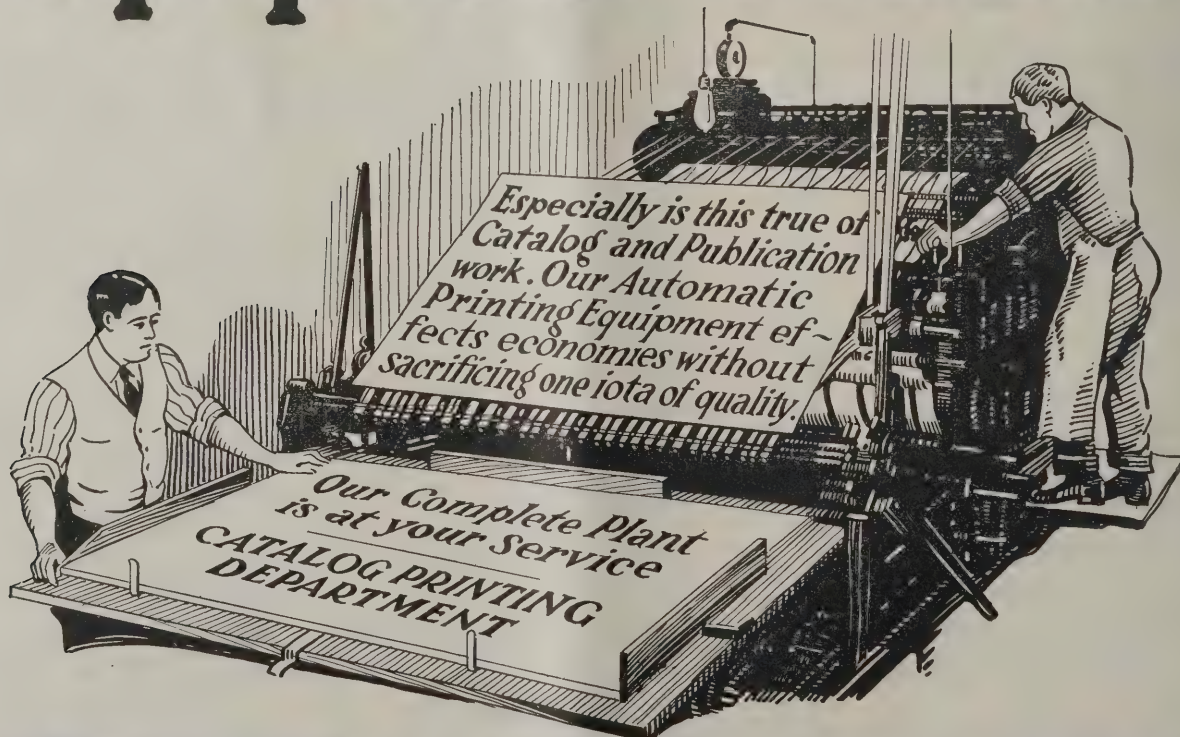 Especially is this true of
Catalog and Publication
work. Our Automatic
Printing Equipment ef~
fects economies without
sacrificing one iota of quality.
Our Complete Plant
is at your Service
CATALOG PRINTING
DEPARTMENT